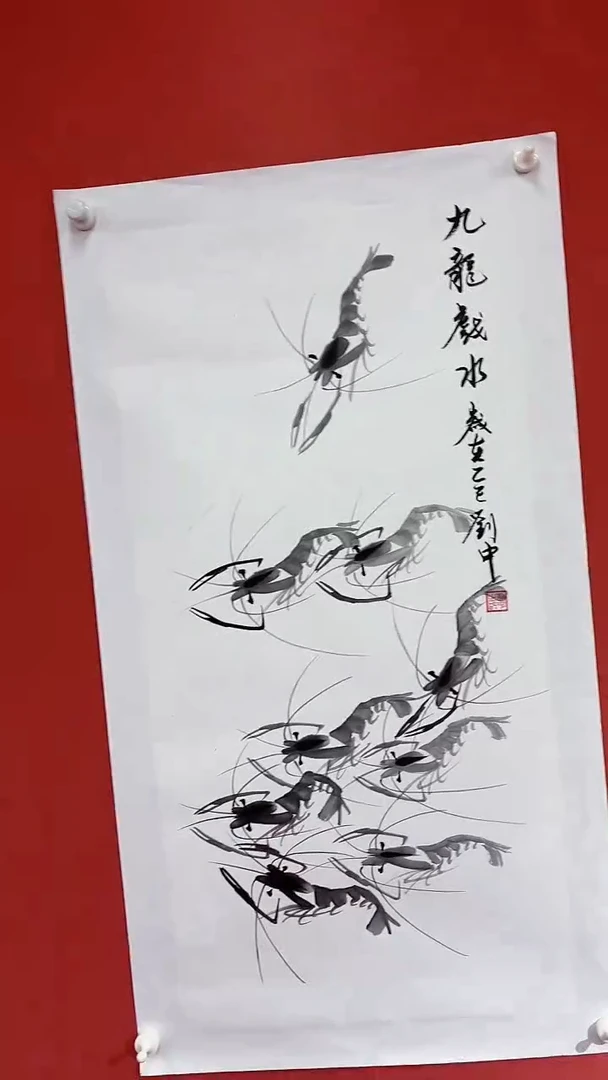 九龍戲水歲在乙巳劉中